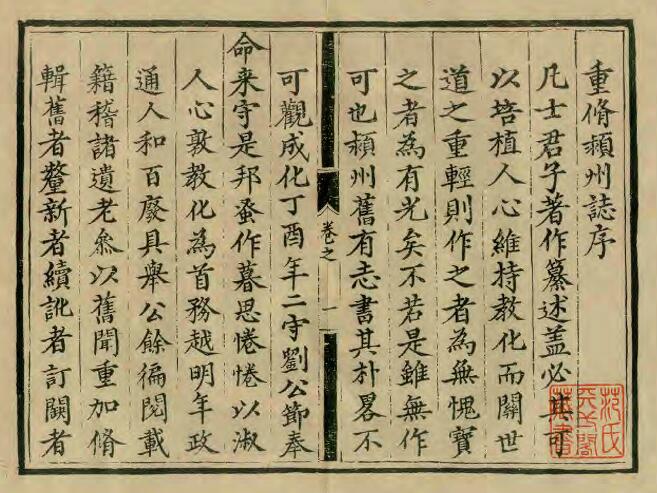 重脩潁州誌序
凡士君子著作纂述盖必其可
以培植人心維持教化而關世
道之重輕則作之者為無愧寶
之者為有光矣不若是雖無作
可也潁州舊有志書其朴畧不
卷之
一
可觀成化丁酉年二守劉公節奉
命来守是邦蚤作暮思惓惓以淑
人心敦教化為首務越明年政
通人和百廢具舉公餘徧閲載
籍稽諸遺老叅以舊聞重加脩
輯舊者釐新者續訛者訂闕者
范氏
天一閣
藏書